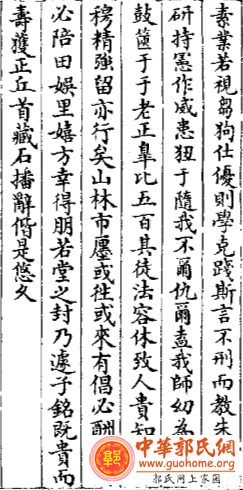 素業若視芻狗仕優則學克踐斯言不刑而教朱
研持憲作威患狃于隨我不爾仇爾盍我師幼爲
鼓篋于于老正臯比五百其徒法容休致人貴知
穆精強留亦行矣山林市廛或徃或來有倡必酬
必陪田娛里嬉方幸得朋若堂之封乃遽予銘既貴而
壽獲正丘首藏石播辭偕是悠久
中華郭氏網
www.guohome.org
郭氏网上家園